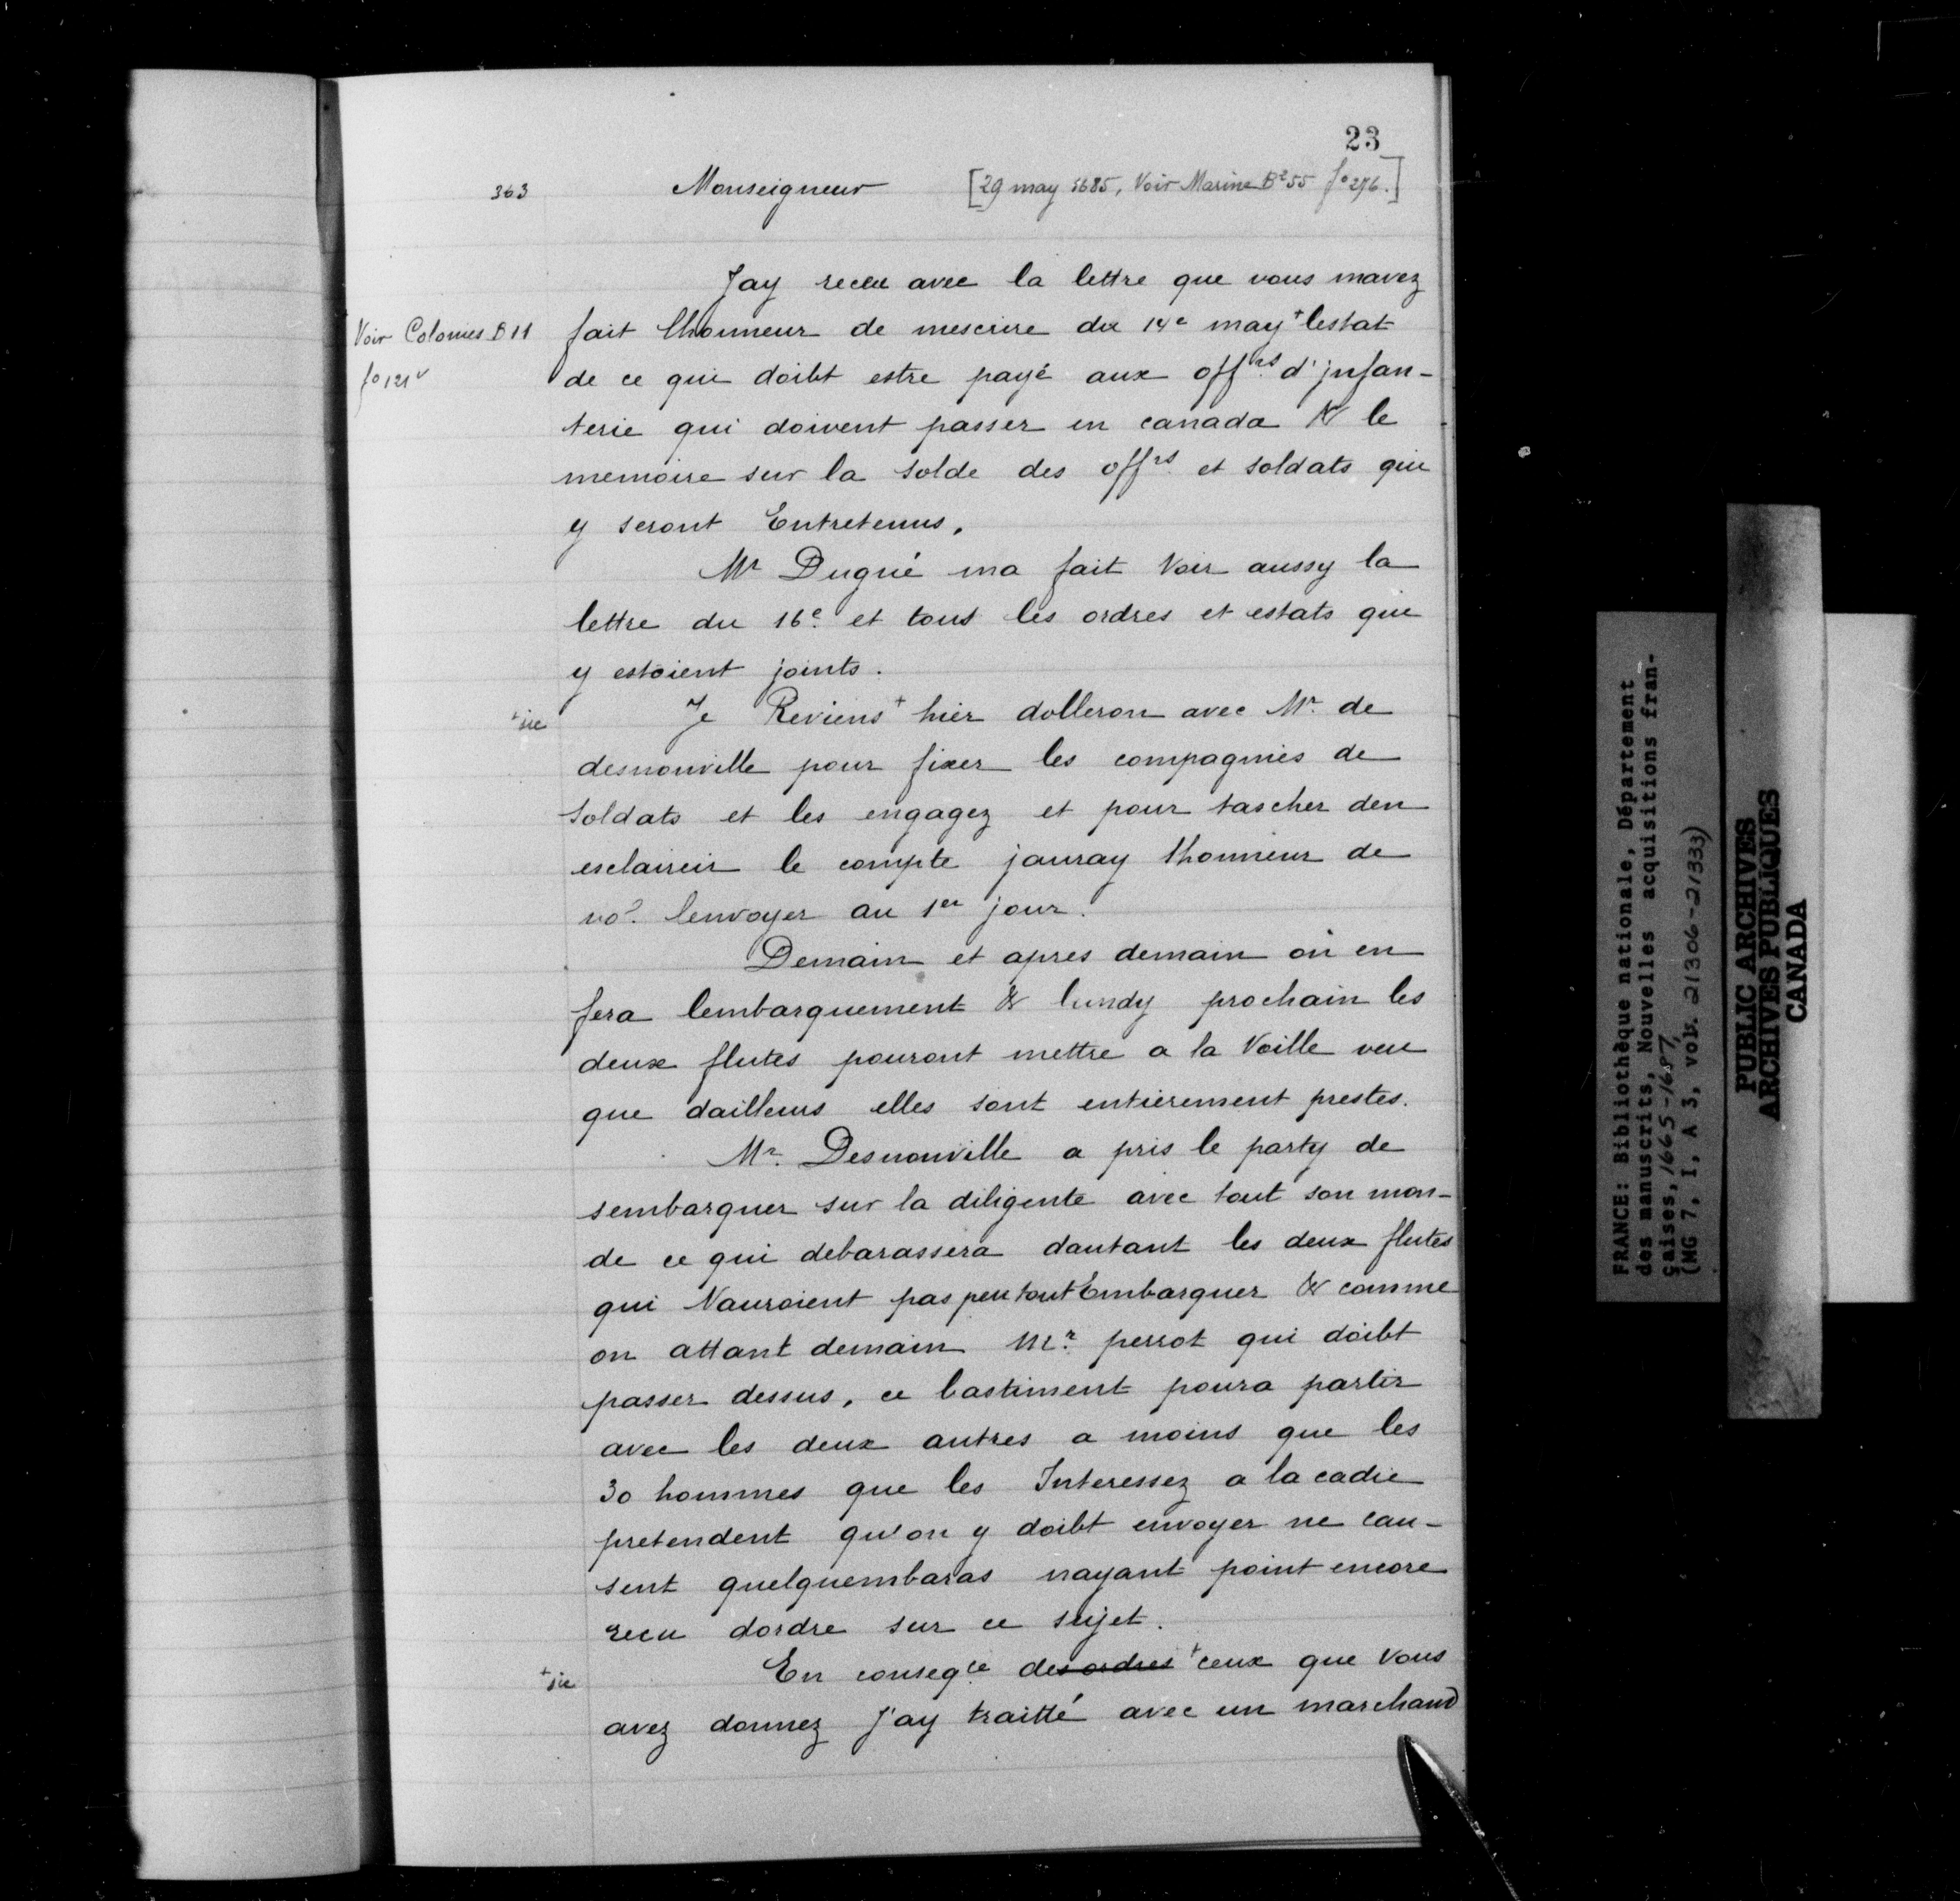 23
363 Monseigneur [29 may 1685, Voir Marine B² 55 f° 276.]
Jay receu avec la lettre que vous mavez
Voir Colonies B 11
f° 121 v
fait lhonneur de mescrire du 14e may + lestat
de ce qui doibt estre payé aux offrs d'jnfan-
terie qui doivent passer en canada & le
memoire sur la solde des offrs et soldats qui
y seront Entretenus.
Mr Dugué ma fait Voir aussy la
lettre du 16e et tous les ordres et estats qui
y estoient joints.
+ sic
Je Reviens + hier dolleron avec Mr de
desnonville pour fixer les compagnies de
soldats et les engagez et pour tascher den
esclaircir le compte jauray lhonneur de
vos lenvoyer au 1er jour.
Demain et apres demain on en
fera lembarquement & lundy prochain les
deux flutes pouront mettre a la Voille veu
que dailleurs elles sont entierement prestes.
Mr. Desnonville a pris le party de
sembarquer sur la diligente avec tout son mon-
de ce qui debarassera dautant les deux flutes
qui Nauroient pas peu tout Embarquer & comme
on attant demain Mr. perrot qui doibt
passer dessus, ce bastiment poura partir
avec les deux autres a moins que les
30 hommes que les Interessez a lacadie
pretendent qu'on y doibt envoyer ne cau-
sent quelquembaras nayant point encore
receu dordre sur ce sujet.
+ sic
En conseqce des ordres + ceux que vous
avez donnez j'ay traitté avec un marchand
FRANCE: Bibliothèque nationale, Département
des manuscrits, Nouvelles acquisitions fran-
çaises, 1665-1687,
(MG 7, I, A 3, vol. 21306-21333)
PUBLIC ARCHIVES
ARCHIVES PUBLIQUES
CANADA